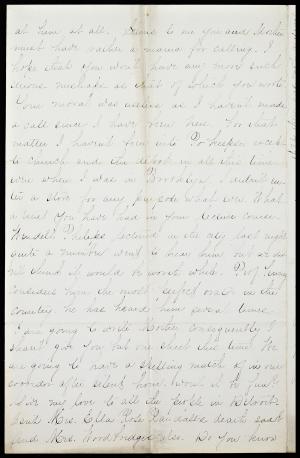 at him at all. Seems to me you and Mother
must have rather a mania for calling. I
hope that you won't have any more such
serious mishaps as that of which you wrote
Your moral was useless as I haven't made
a call since I have been here. For that
matter I haven't been into Po'keepsie except
to church and the depot in all this time
even when I was in Brooklyn I didn't en-
ter a store for any purpose what ever. What
a treat you have had in your lecture course.
Wendell Philips lectured in the city last night
quite a number went to hear him but I did
not think it would be worth while. Prof.
considers him the most perfect orator in the
country, he has heard him several times.
I am going to write Mother consequently I
shan't give you but one sheet this time. We
are going to have a spelling match in our
corridor after silent hour, won't it be fun?
Give my love to all the people in Beloit
Isn't Mrs. Ella Rose Randall's death sad?
and Mrs. Woodbridge's also. Do you know